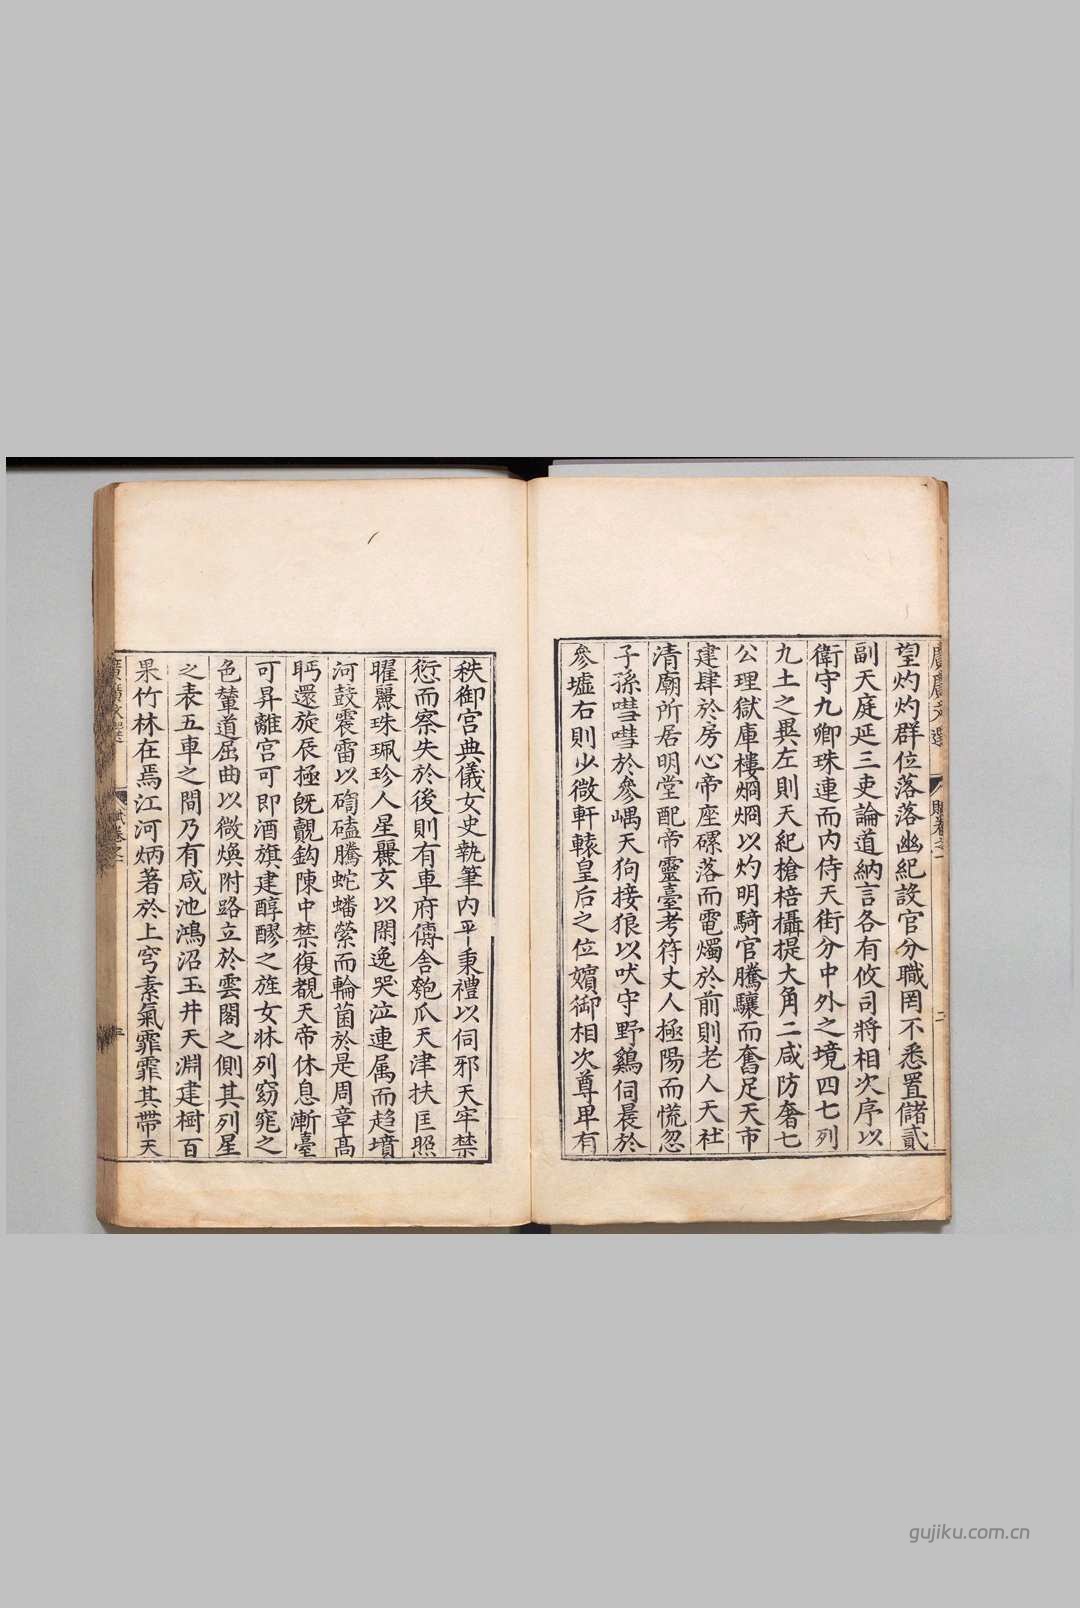 廣廣文選
賦卷之一
二
望灼灼群位落落幽紀設官分職罔不悉置儲貳
副天庭延三吏論道納言各有攸司將相次序以
衛守九卿珠連而內侍天街分中外之境四七列
九土之異左則天紀槍棓攝提大角二咸防奢七
公理獄庫樓烱烱以灼明騎官騰驤而奮足天市
建肆於房心帝座磥落而電燭於前則老人天社
清廟所居明堂配帝靈臺考符丈人極陽而慌忽
子孫嘒嘒於參嵎天狗接狼以吠守野鷄伺晨於
參墟右則少微軒轅皇后之位嬪御相次尊卑有
秩御宮典儀女史執筆內平秉禮以伺邪天牢禁
愆而察失於後則有車府傳舍匏瓜天津扶匡照
曜麗珠珮珍人星麗玄以閑逸哭泣連属而趋墳
河鼓震雷以磕騰蛇蟠縈而輪菌於是周章高
眄還旋辰極既覿鈎陳中禁復覩天帝休息漸臺
可昇離宮可即酒旗建醇醪之旌女牀列窈窕之
色輦道屈曲以微煥附路立於雲閣之側其列星
之表五車之間乃有咸池鴻沼玉井天淵建樹百
果竹林在焉江河炳著於上穹素氣霏霏其帶天
廣廣文選
賦卷之一
三
gujiku.com.cn